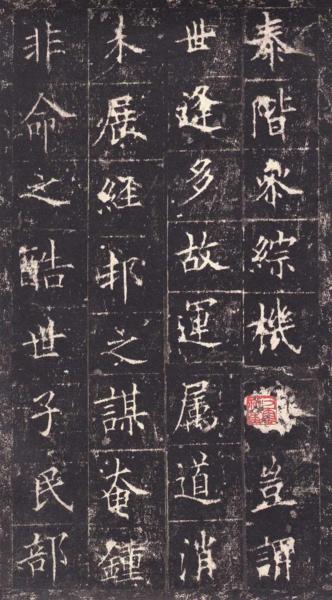 泰階叅綜機豈謂
世逢多故運属道消
未展經邦之謀奄鍾
非命之酷世子民部